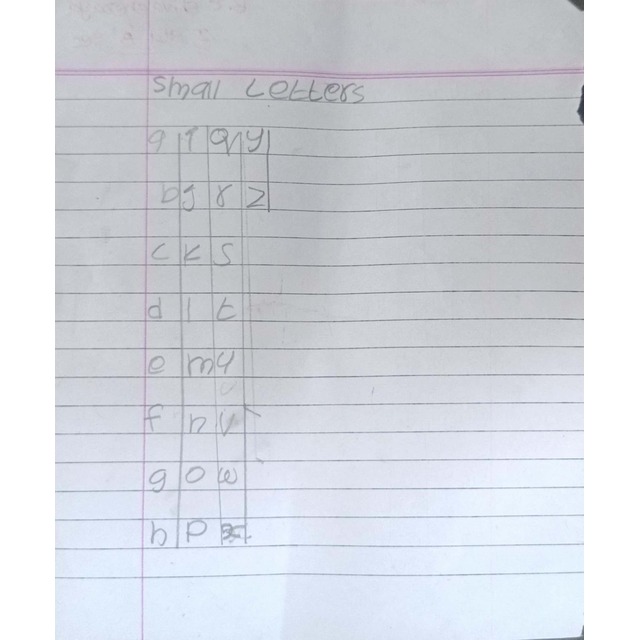 Small Letters
a i q y
b j r z
c k s
d l t
e m u
f n v
g o w
h p